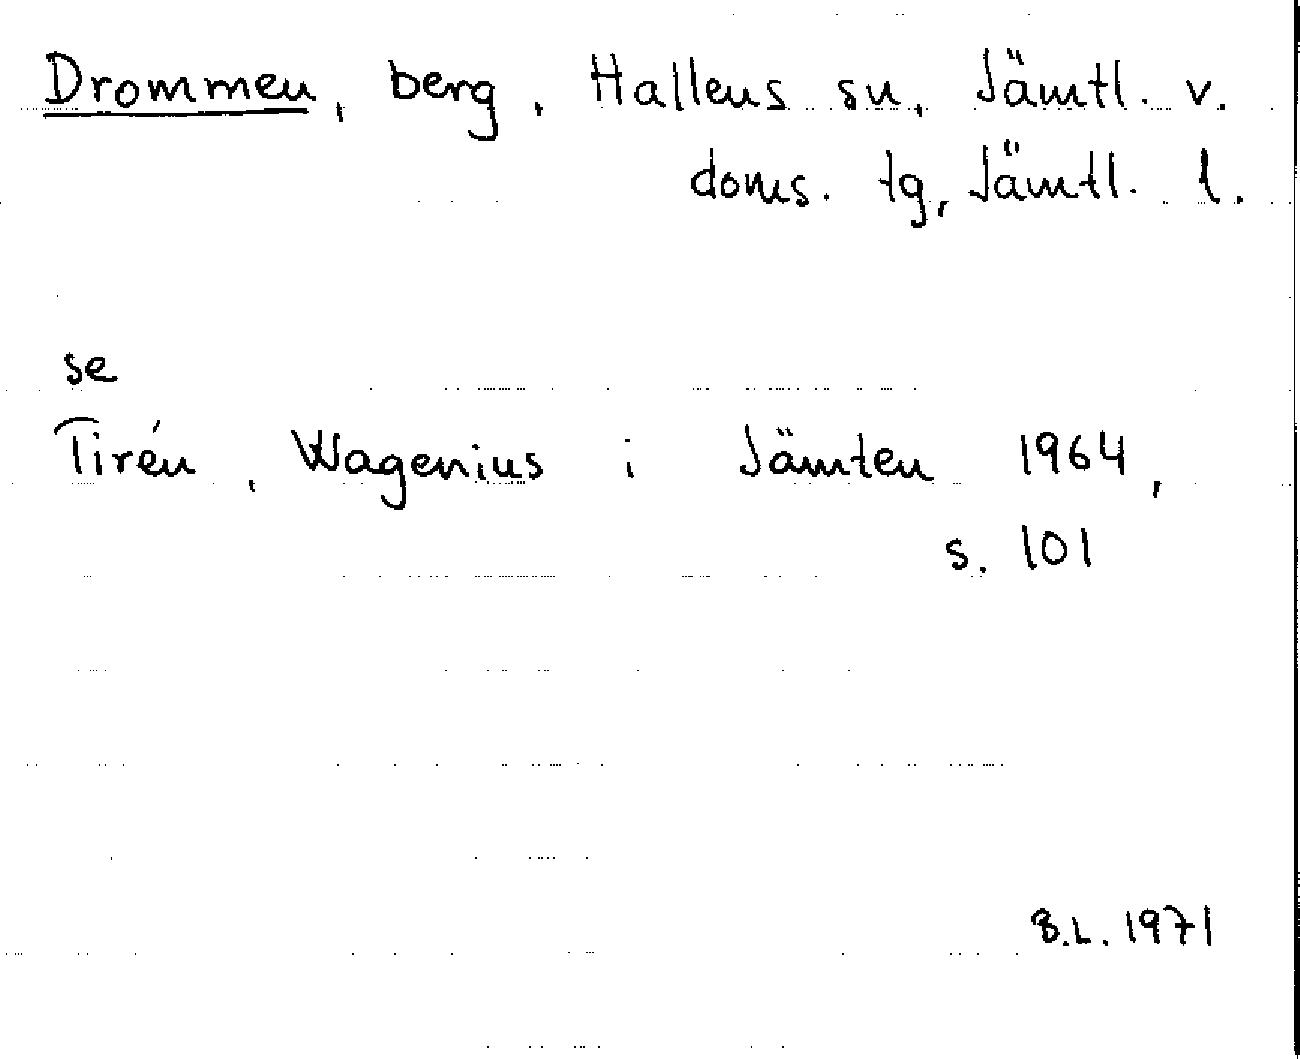 Drommen, berg, Hallens sn, Jämtl. v.
doms. tg, Jämtl. l.
se
Tirén, Wagenius i Jämten 1964,
s. 101
B.L. 1971